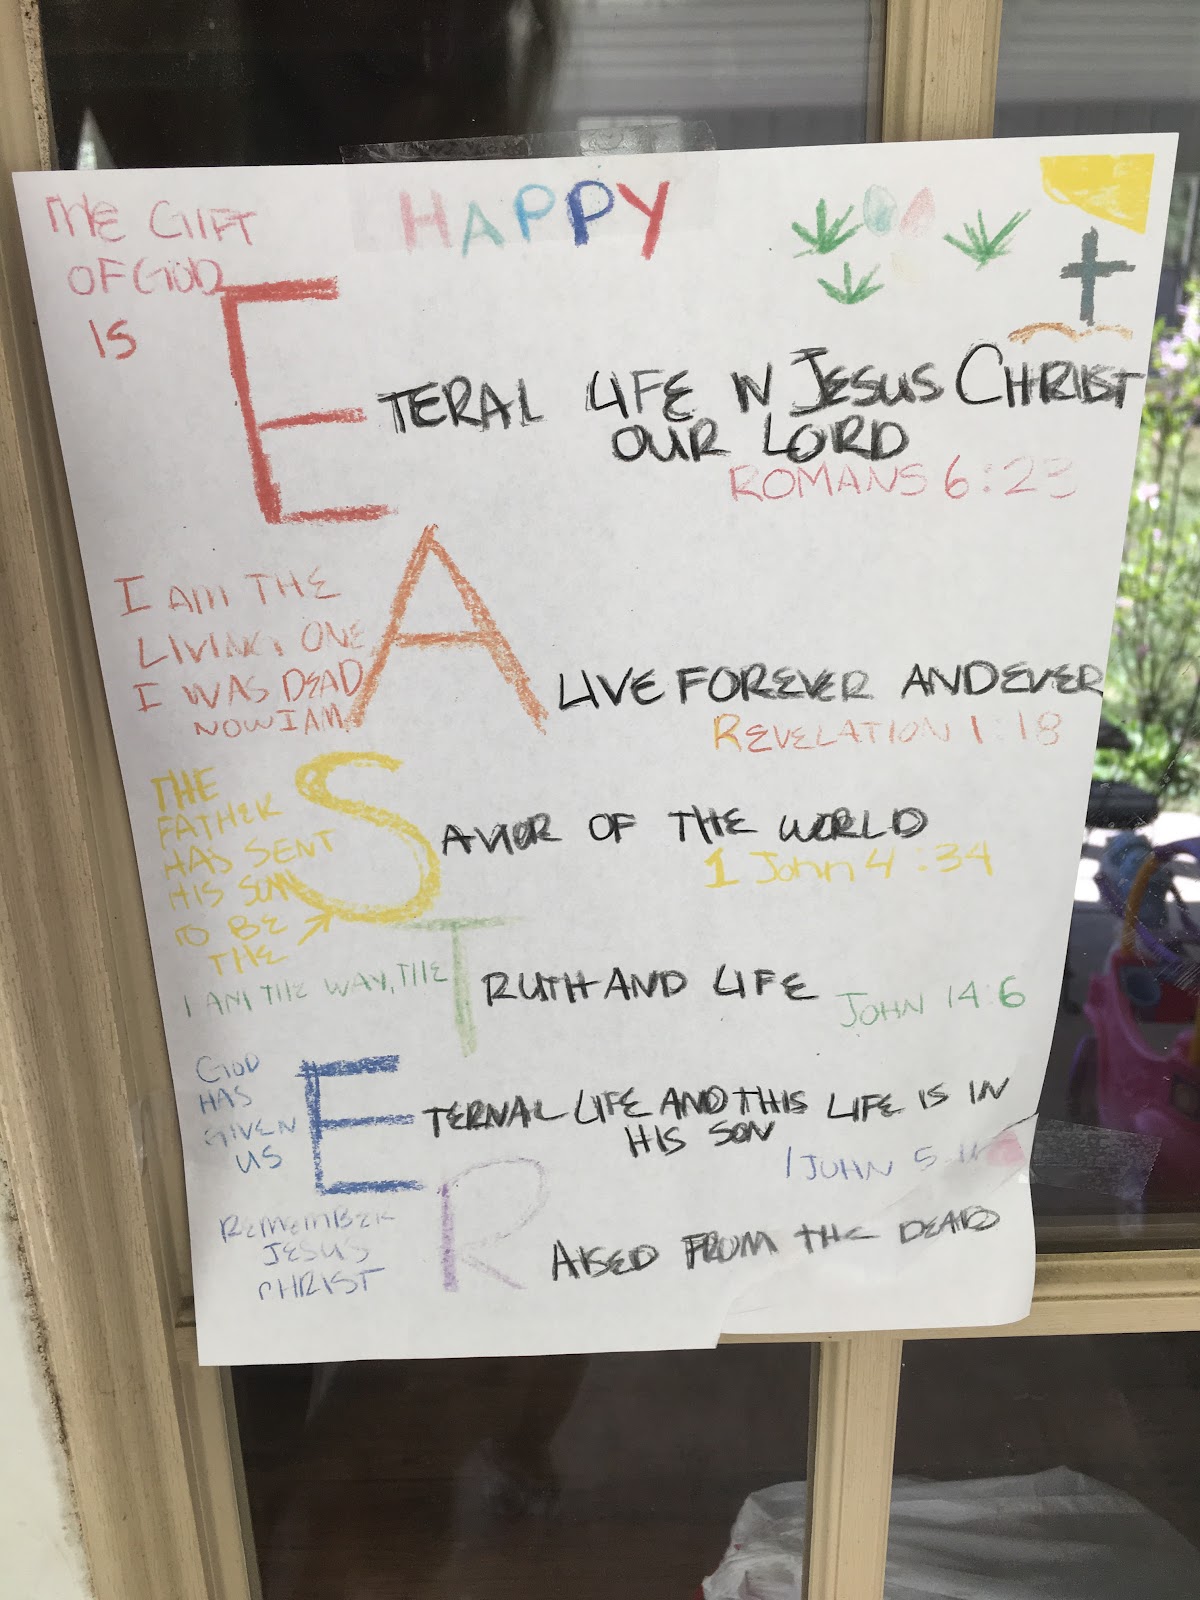 HAPPY
THE GIFT
OF GOD
IS
ETERAL LIFE IN JESUS CHRIST
OUR LORD
ROMANS 6:23
I AM THE
LIVING ONE
I WAS DEAD
NOW I AM
ALIVE FOREVER AND EVER
REVELATION 1:18
THE
FATHER
HAS SENT
HIS SON
TO BE
THE →
SAVIOR OF THE WORLD
1 John 4:34
I AM THE WAY, THE TRUTH AND LIFE
JOHN 14:6
GOD
HAS
GIVEN
US
ETERNAL LIFE AND THIS LIFE IS IN
HIS SON
1 JOHN 5
REMEMBER
JESUS
CHRIST
RAISED FROM THE DEAD